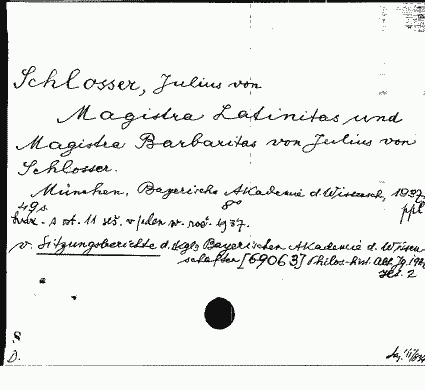 Schlosser, Julius von
Magistra Latinitas und
Magistra Barbaritas von Julius von
Schlosser.
München, Bayerische Akademie d. Wissensch, 1937,
49 s. 8° ppl
1 st. 11 seš. v jeden w. roč. 1937.
v. Sitzungsberichte d. kgl. Bayerischen Akademie d. Wissen-
schaften [69063] Philos.-hist. Abt. Jg.
seš. 2
S
D.